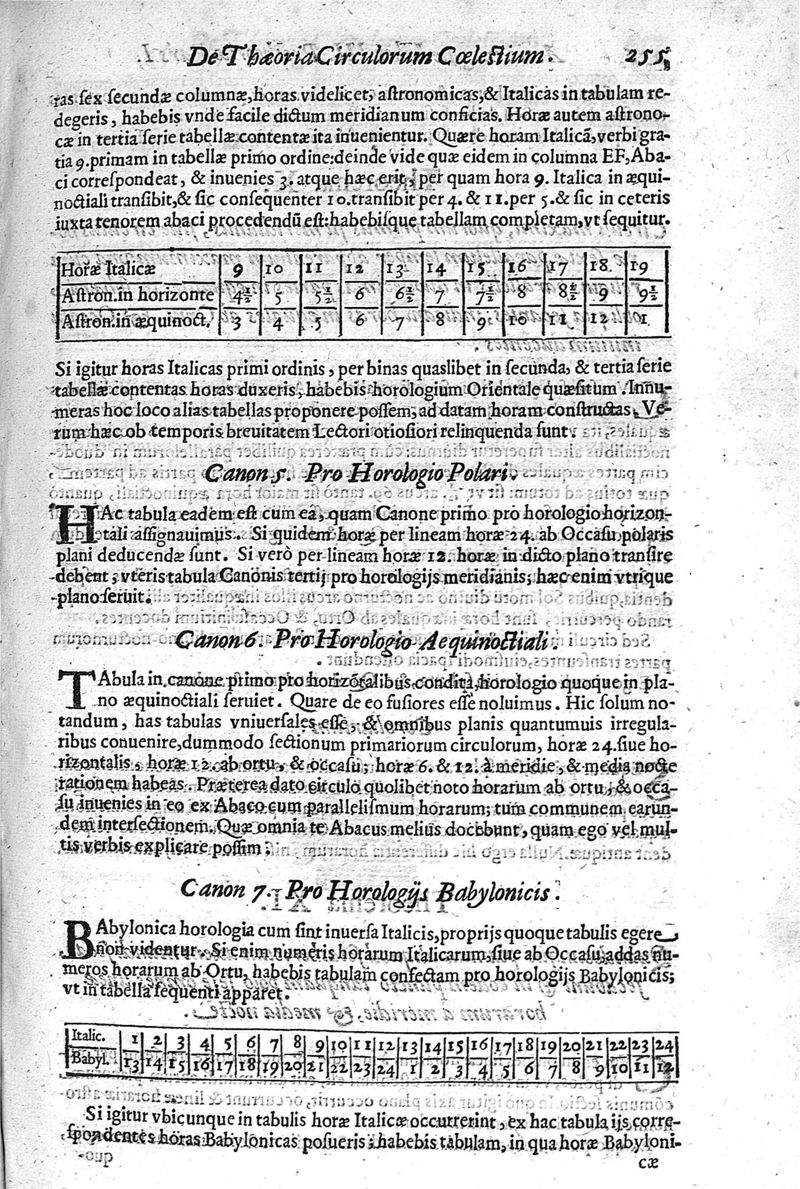 De Thæoria Circulorum Cœlestium. 255
ras sex secundæ columnæ, horas videlicet, astronomicas, & Italicas in tabulam re-
degeris, habebis vnde facile dictum meridianum conficias. Horæ autem astrono-
cæ in tertia serie tabellæ contentæ ita inuenientur. Quære horam Italicã, verbi gra-
tia 9. primam in tabellæ primo ordine: deinde vide quæ eidem in columna EF, Aba-
ci correspondeat, & inuenies 3. atque hæc erit, per quam hora 9. Italica in æqui-
noctiali transibit, & sic consequenter 10. transibit per 4. & 11. per 5. & sic in ceteris
iuxta tenorem abaci procedendũ est: habebisque tabellam completam, vt sequitur.
Horæ Italicæ 9 10 11 12 13 14 15 16 17 18 19
Astron. in horizonte 4½ 5 5½ 6 6½ 7 7½ 8 8½ 9 9½
Astron. in æquinoct. 3 4 5 6 7 8 9 10 11 12 1
Si igitur horas Italicas primi ordinis, per binas quaslibet in secunda, & tertia serie
tabellæ contentas horas duxeris, habebis horologium Orientale quæsitum. Innu-
meras hoc loco alias tabellas proponere possem, ad datam horam constructas. Ve-
rum hæc ob temporis breuitatem Lectori otiosiori relinquenda sunt.
Canon 5. Pro Horologio Polari.
HAc tabula eadem est cum ea, quam Canone primo pro horologio horizon-
tali assignauimus. Si quidem horæ per lineam horæ 24. ab Occasu polaris
plani deducendæ sunt. Si verò per lineam horæ 12. horæ in dicto plano transire
debent, vteris tabula Canonis tertij pro horologijs meridianis; hæc enim vtrique
plano seruit.
Canon 6. Pro Horologio Aequinoctiali.
TAbula in canone primo pro horizõtalibus condita, horologio quoque in pla-
no æquinoctiali seruiet. Quare de eo fusiores esse noluimus. Hic solum no-
tandum, has tabulas vniuersales esse, & omnibus planis quantumuis irregula-
ribus conuenire, dummodo sectionum primariorum circulorum, horæ 24. siue ho-
rizontalis, horæ 12. ab ortu, & occasu; horæ 6. & 12. à meridie, & media nocte
rationem habeas. Præterea dato circulo quolibet noto horarum ab ortu, & occa-
su inuenies in eo ex Abaco cum parallelismo horarum; tum communem earun-
dem intersectionem. Quæ omnia te Abacus melius docebunt, quam ego vel mul-
tis verbis explicare possim.
Canon 7. Pro Horologijs Babylonicis.
BAbylonica horologia cum sint inuersa Italicis, proprijs quoque tabulis egere
non videntur. Si enim numeris horarum Italicarum, siue ab Occasu, addas nu-
meros horarum ab Ortu, habebis tabulam confectam pro horologijs Babylonicis;
vt in tabella sequenti apparet.
Italic. 1 2 3 4 5 6 7 8 9 10 11 12 13 14 15 16 17 18 19 20 21 22 23 24
Babyl. 13 14 15 16 17 18 19 20 21 22 23 24 1 2 3 4 5 6 7 8 9 10 11 12
Si igitur vbicunque in tabulis horæ Italicæ occurrerint, ex hac tabula ijs corre-
spondentes horas Babylonicas posueris; habebis tabulam, in qua horæ Babyloni-
cæ